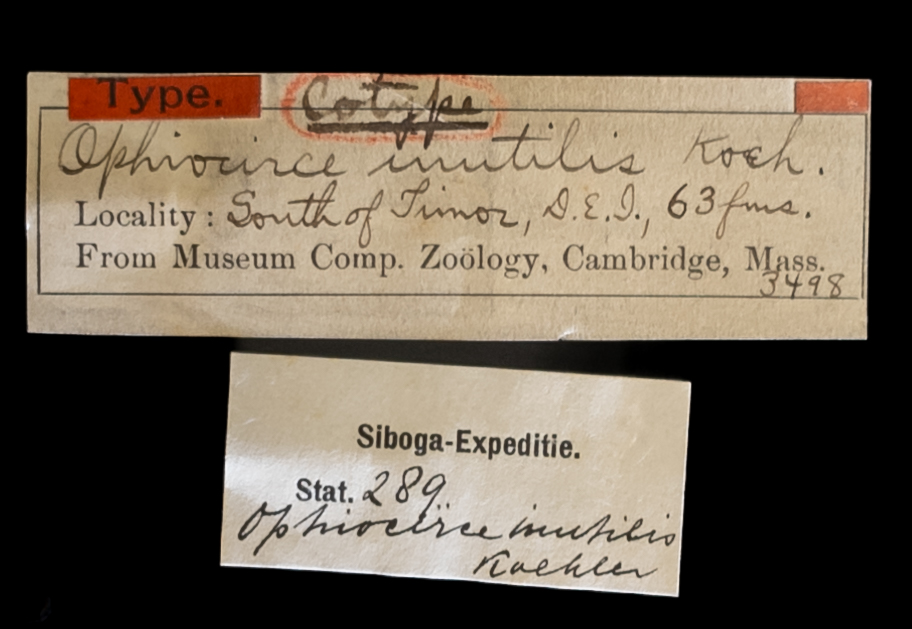 Type. Cotype
Ophiocirce inutilis Koeh.
Locality: South of Timor, D.E.I., 63 fms.
From Museum Comp. Zoölogy, Cambridge, Mass.
3498
Siboga-Expeditie.
Stat. 289
Ophiocirce inutilis
Koehler